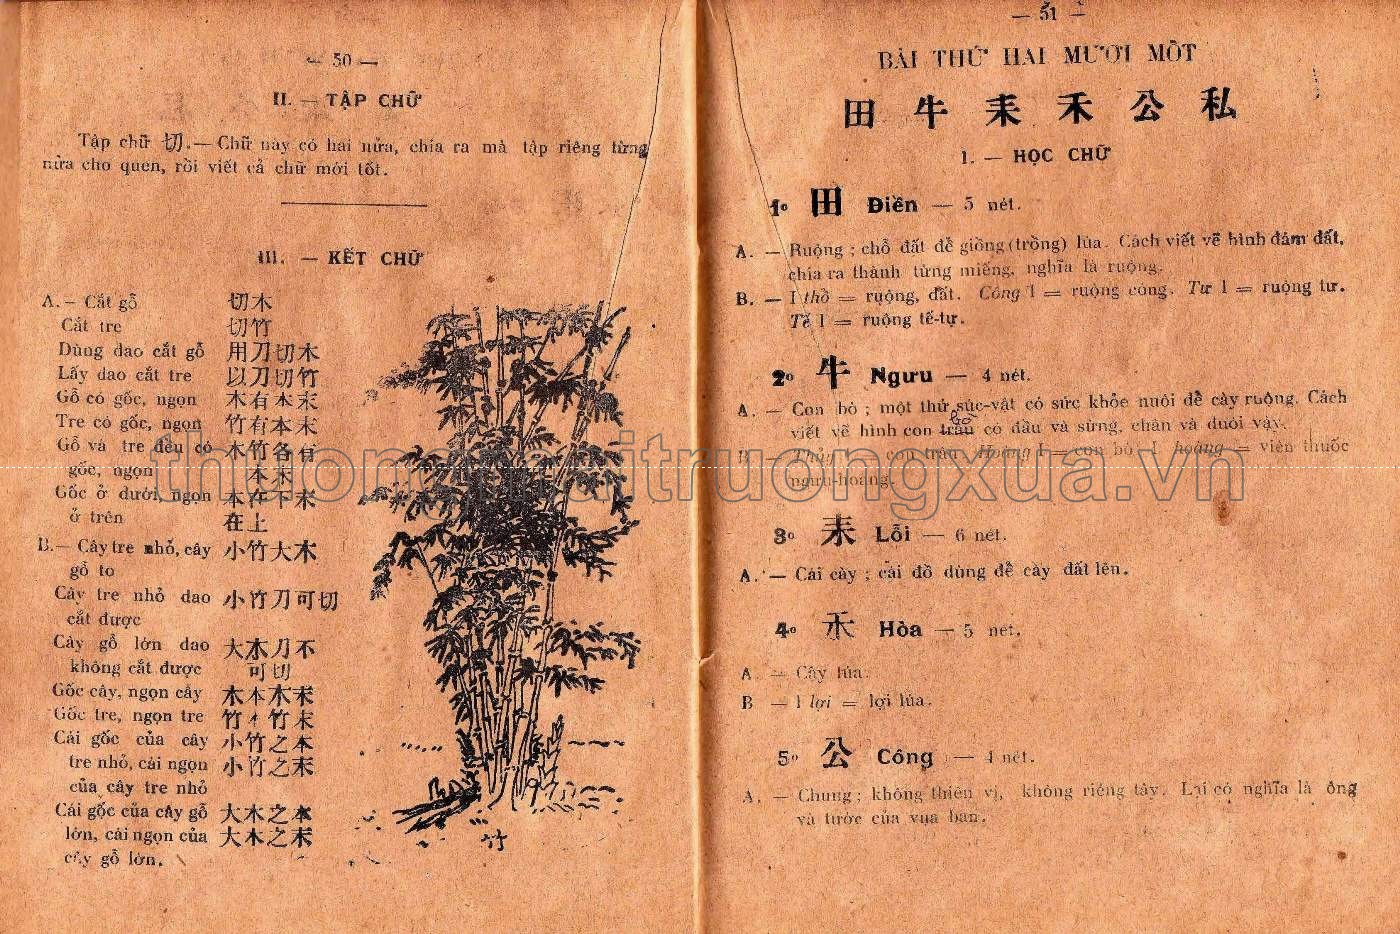 — 50 —
II. — TẬP CHỮ
Tập chữ 切. — Chữ này có hai nửa, chia ra mà tập riêng từng
nửa cho quen, rồi viết cả chữ mới tốt.
III. — KẾT CHỮ
A. — Cắt gỗ 切木
Cắt tre 切竹
Dùng dao cắt gỗ 用刀切木
Lấy dao cắt tre 以刀切竹
Gỗ có gốc, ngọn 木有本末
Tre có gốc, ngọn 竹有本末
Gỗ và tre đều có 木竹各有
gốc, ngọn 本末
Gốc ở dưới, ngọn 本在下末
ở trên 在上
B. — Cây tre nhỏ, cây 小竹大木
gỗ to
Cây tre nhỏ dao 小竹刀可切
cắt được
Cây gỗ lớn dao 大木刀不
không cắt được 可切
Gốc cây, ngọn cây 木本木末
Gốc tre, ngọn tre 竹本竹末
Cái gốc của cây 小竹之本
tre nhỏ, cái ngọn 小竹之末
của cây tre nhỏ
Cái gốc của cây gỗ 大木之本
lớn, cái ngọn của 大木之末
cây gỗ lớn.
竹
— 51 —
BÀI THỨ HAI MƯƠI MỐT
田 牛 耒 禾 公 私
I. — HỌC CHỮ
1º 田 Điền — 5 nét.
A. — Ruộng ; chỗ đất để giồng (trồng) lúa. Cách viết vẽ hình đám đất,
chia ra thành từng miếng, nghĩa là ruộng.
B. — I thổ = ruộng, đất. Công I = ruộng công. Tư I = ruộng tư.
Tế I = ruộng tế-tự.
2º 牛 Ngưu — 4 nét.
A. — Con bò ; một thứ súc-vật có sức khỏe nuôi để cày ruộng. Cách
viết vẽ hình con trâu có đầu và sừng, chân và đuôi vậy.
B — Thủy I = con trâu. Hoàng I = con bò. I hoàng = viên thuốc
ngưu-hoàng.
3º 耒 Lỗi — 6 nét.
A. — Cái cày ; cái đồ dùng để cày đất lên.
4º 禾 Hòa — 5 nét.
A — Cây lúa.
B — I lợi = lợi lúa.
5º 公 Công — 4 nét.
A. — Chung ; không thiên vị, không riêng tây. Lại có nghĩa là ông
và tước của vua ban.
thuongmaitruongxua.vn